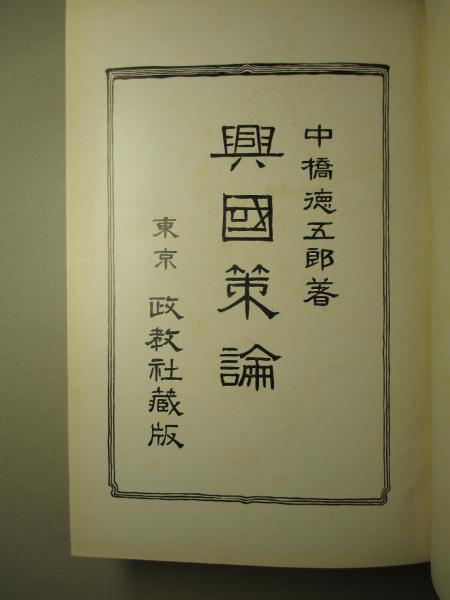 中橋德五郎著
興國策論
東京 政教社藏版